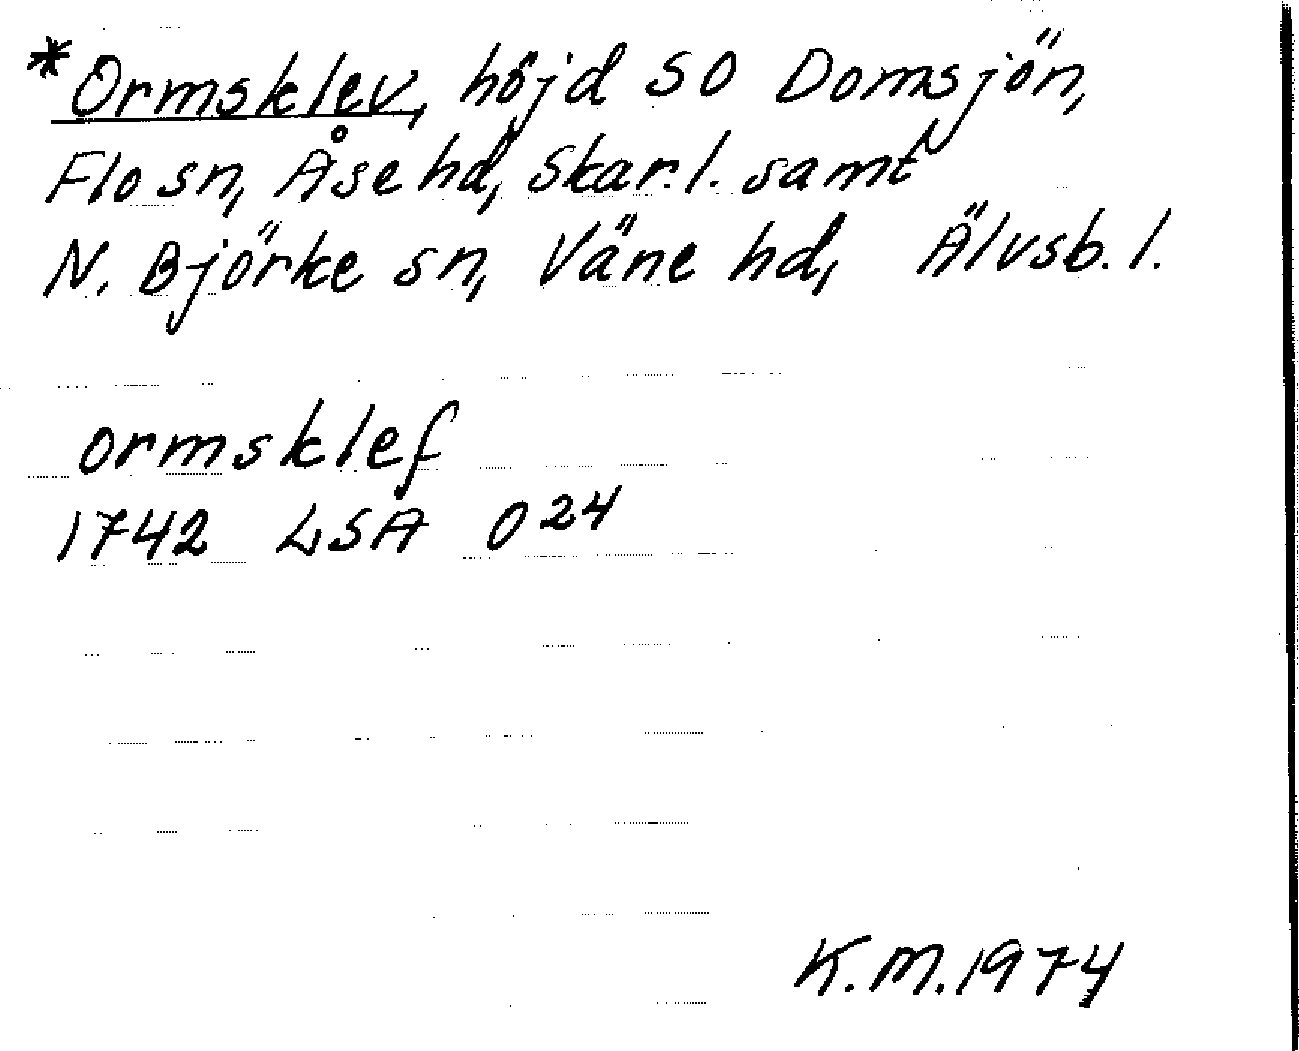 *Ormsklev, höjd SO Domsjön,
Flo sn, Åse hd, Skar. l. samt
N. Björke sn, Väne hd, Älvsb. l.
ormsklef
1742 LSA O24
K.M. 1974